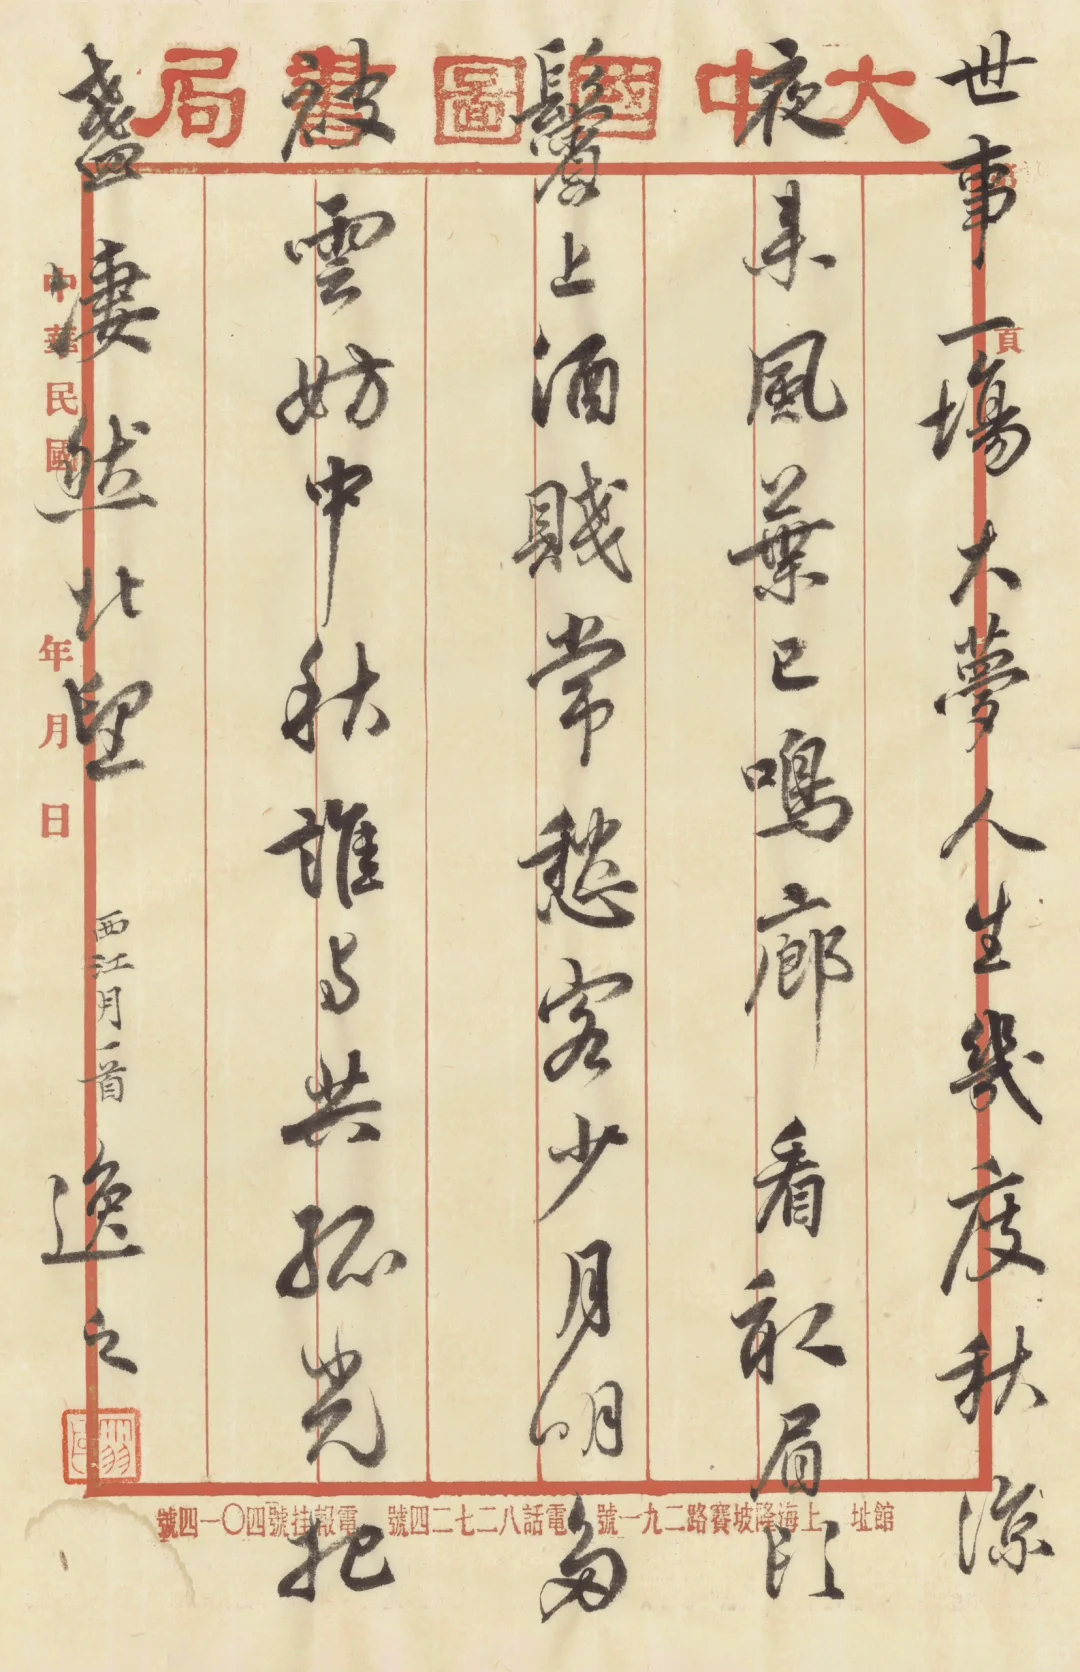 大中國圖書局
世事一場大夢人生幾度秋涼
夜來風葉已鳴廊看取眉頭
鬢上酒賤常愁客少月明多
被雲妨中秋誰與共孤光把
盞凄然北望
西江月一首
逸之
頁
中華民國 年 月 日
館址 上海降坡賽路二九一號 電話八二七二四號 電報挂號四〇一四號